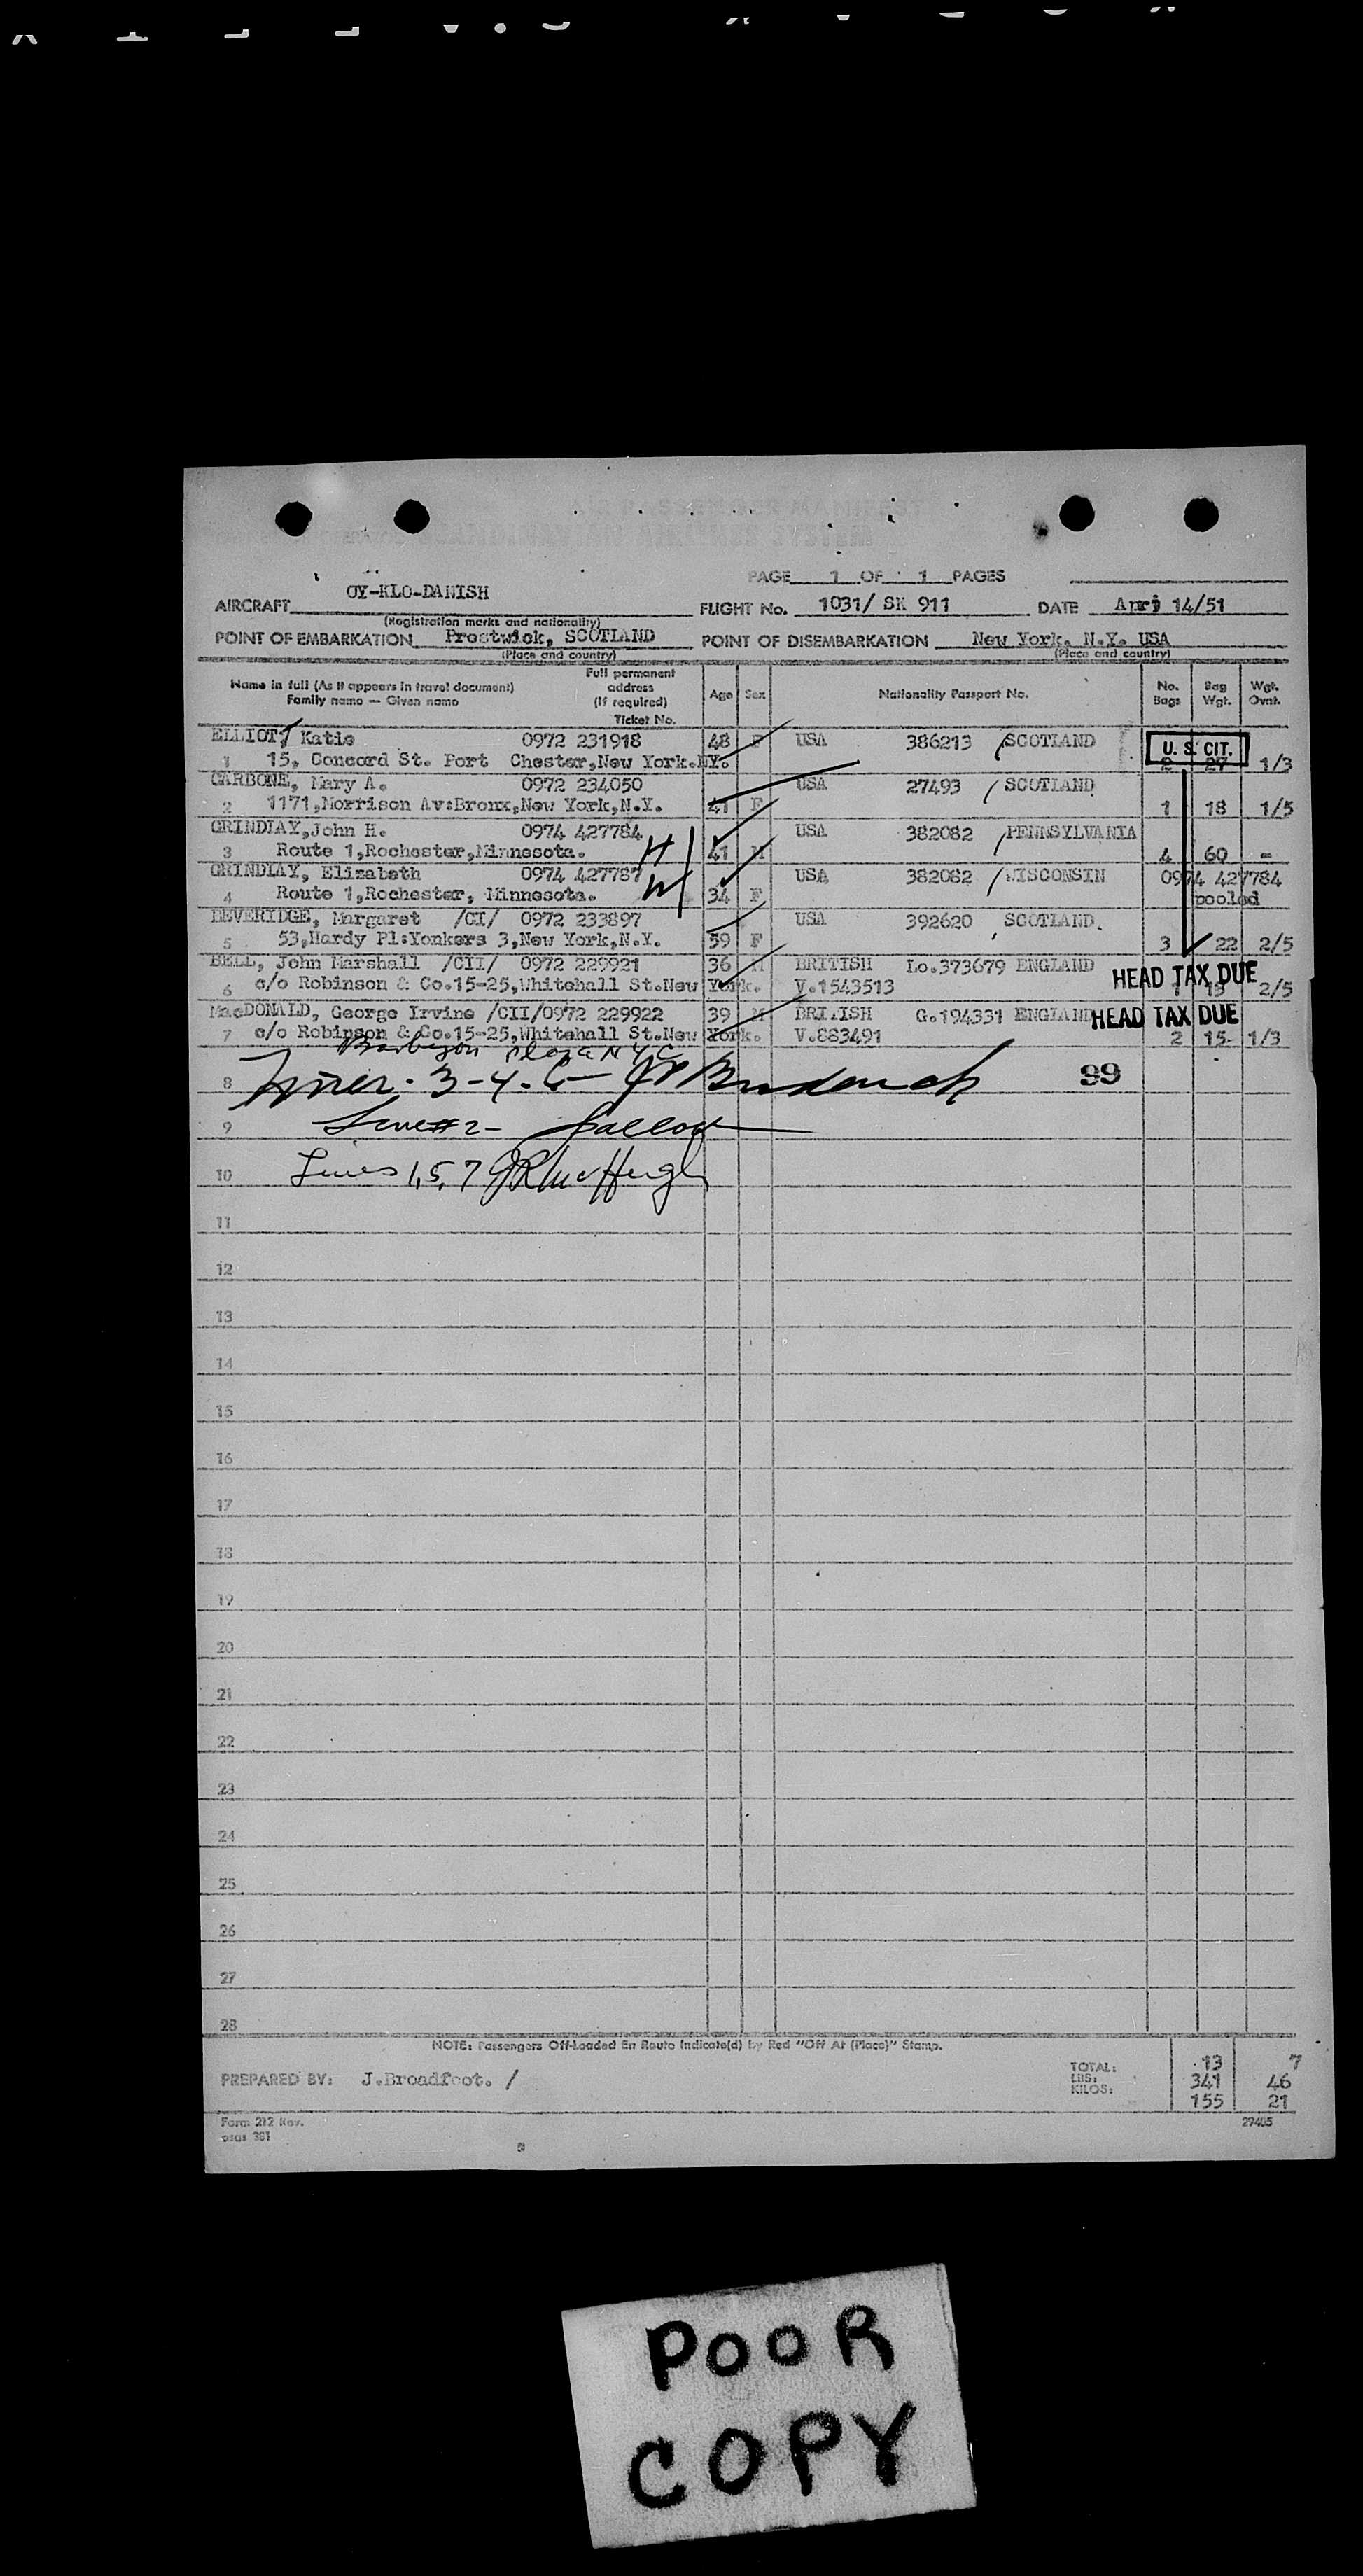 AIR PASSENGER MANIFEST
SCANDINAVIAN AIRLINES SYSTEM
PAGE 1 OF 1 PAGES
AIRCRAFT OY-KLO-DANISH FLIGHT No. 1031/ SK 911 DATE 14/51
(Registration marks and nationality)
POINT OF EMBARKATION Prestwick, SCOTLAND POINT OF DISEMBARKATION New York. N.Y. USA
(Place and country) (Place and country)
Name in full (As it appears in travel document) Family name — Given name Full permanent address (If required) Ticket No. Age Sex Nationality Passport No. No. Bags Bag Wgt. Wgt. Ovnt.
ELLIOT, Katie 0972 231918 48 F USA 386213 /SCOTLAND U. S. CIT.
1 15, Concord St. Port Chester,New York.NY. 2 27 1/3
CARBONE, Mary A. 0972 234050 USA 27493 / SCOTLAND
2 1171,Morrison Av:Bronx,New York,N.Y. 41 F 1 18 1/5
GRINDLAY,John H. 0974 427784 USA 382082 /PENNSYLVANIA
3 Route 1,Rochester,Minnesota. H 41 M 4 60 -
GRINDLAY, Elizabeth 0974 427787 USA 382082 /WISCONSIN 0974 427784
4 Route 1,Rochester, Minnesota. W 34 F pooled
BEVERIDGE, Margaret /CI/ 0972 233897 USA 392620 SCOTLAND.
5 53,Hardy Pl:Yonkers 3,New York,N.Y. 59 F 3 22 2/5
BELL, John Marshall /CII/ 0972 229921 36 M BRITISH Lo.373679 ENGLAND HEAD TAX DUE
6 c/o Robinson & Co.15-25,Whitehall St.New York. V.1543513 1 13 2/5
MacDONALD, George Irvine /CII/0972 229922 39 M BRITISH G.194331 ENGLAND HEAD TAX DUE
7 c/o Robinson & Co.15-25,Whitehall St.New York. V.883491 2 15 1/3
Barbizon Plaza NYC
8 3-4-6- 99
9 Line #2-
10 Lines 1,5,7
11
12
13
14
15
16
17
18
19
20
21
22
23
24
25
26
27
28
NOTE: Passengers Off-Loaded En Route Indicate(d) by Red "Off At (Place)" Stamp.
PREPARED BY: J.Broadfoot. /
TOTAL: 13 7
LBS: 341 46
KILOS: 155 21
Form 212 Rev.
29405
POOR
COPY